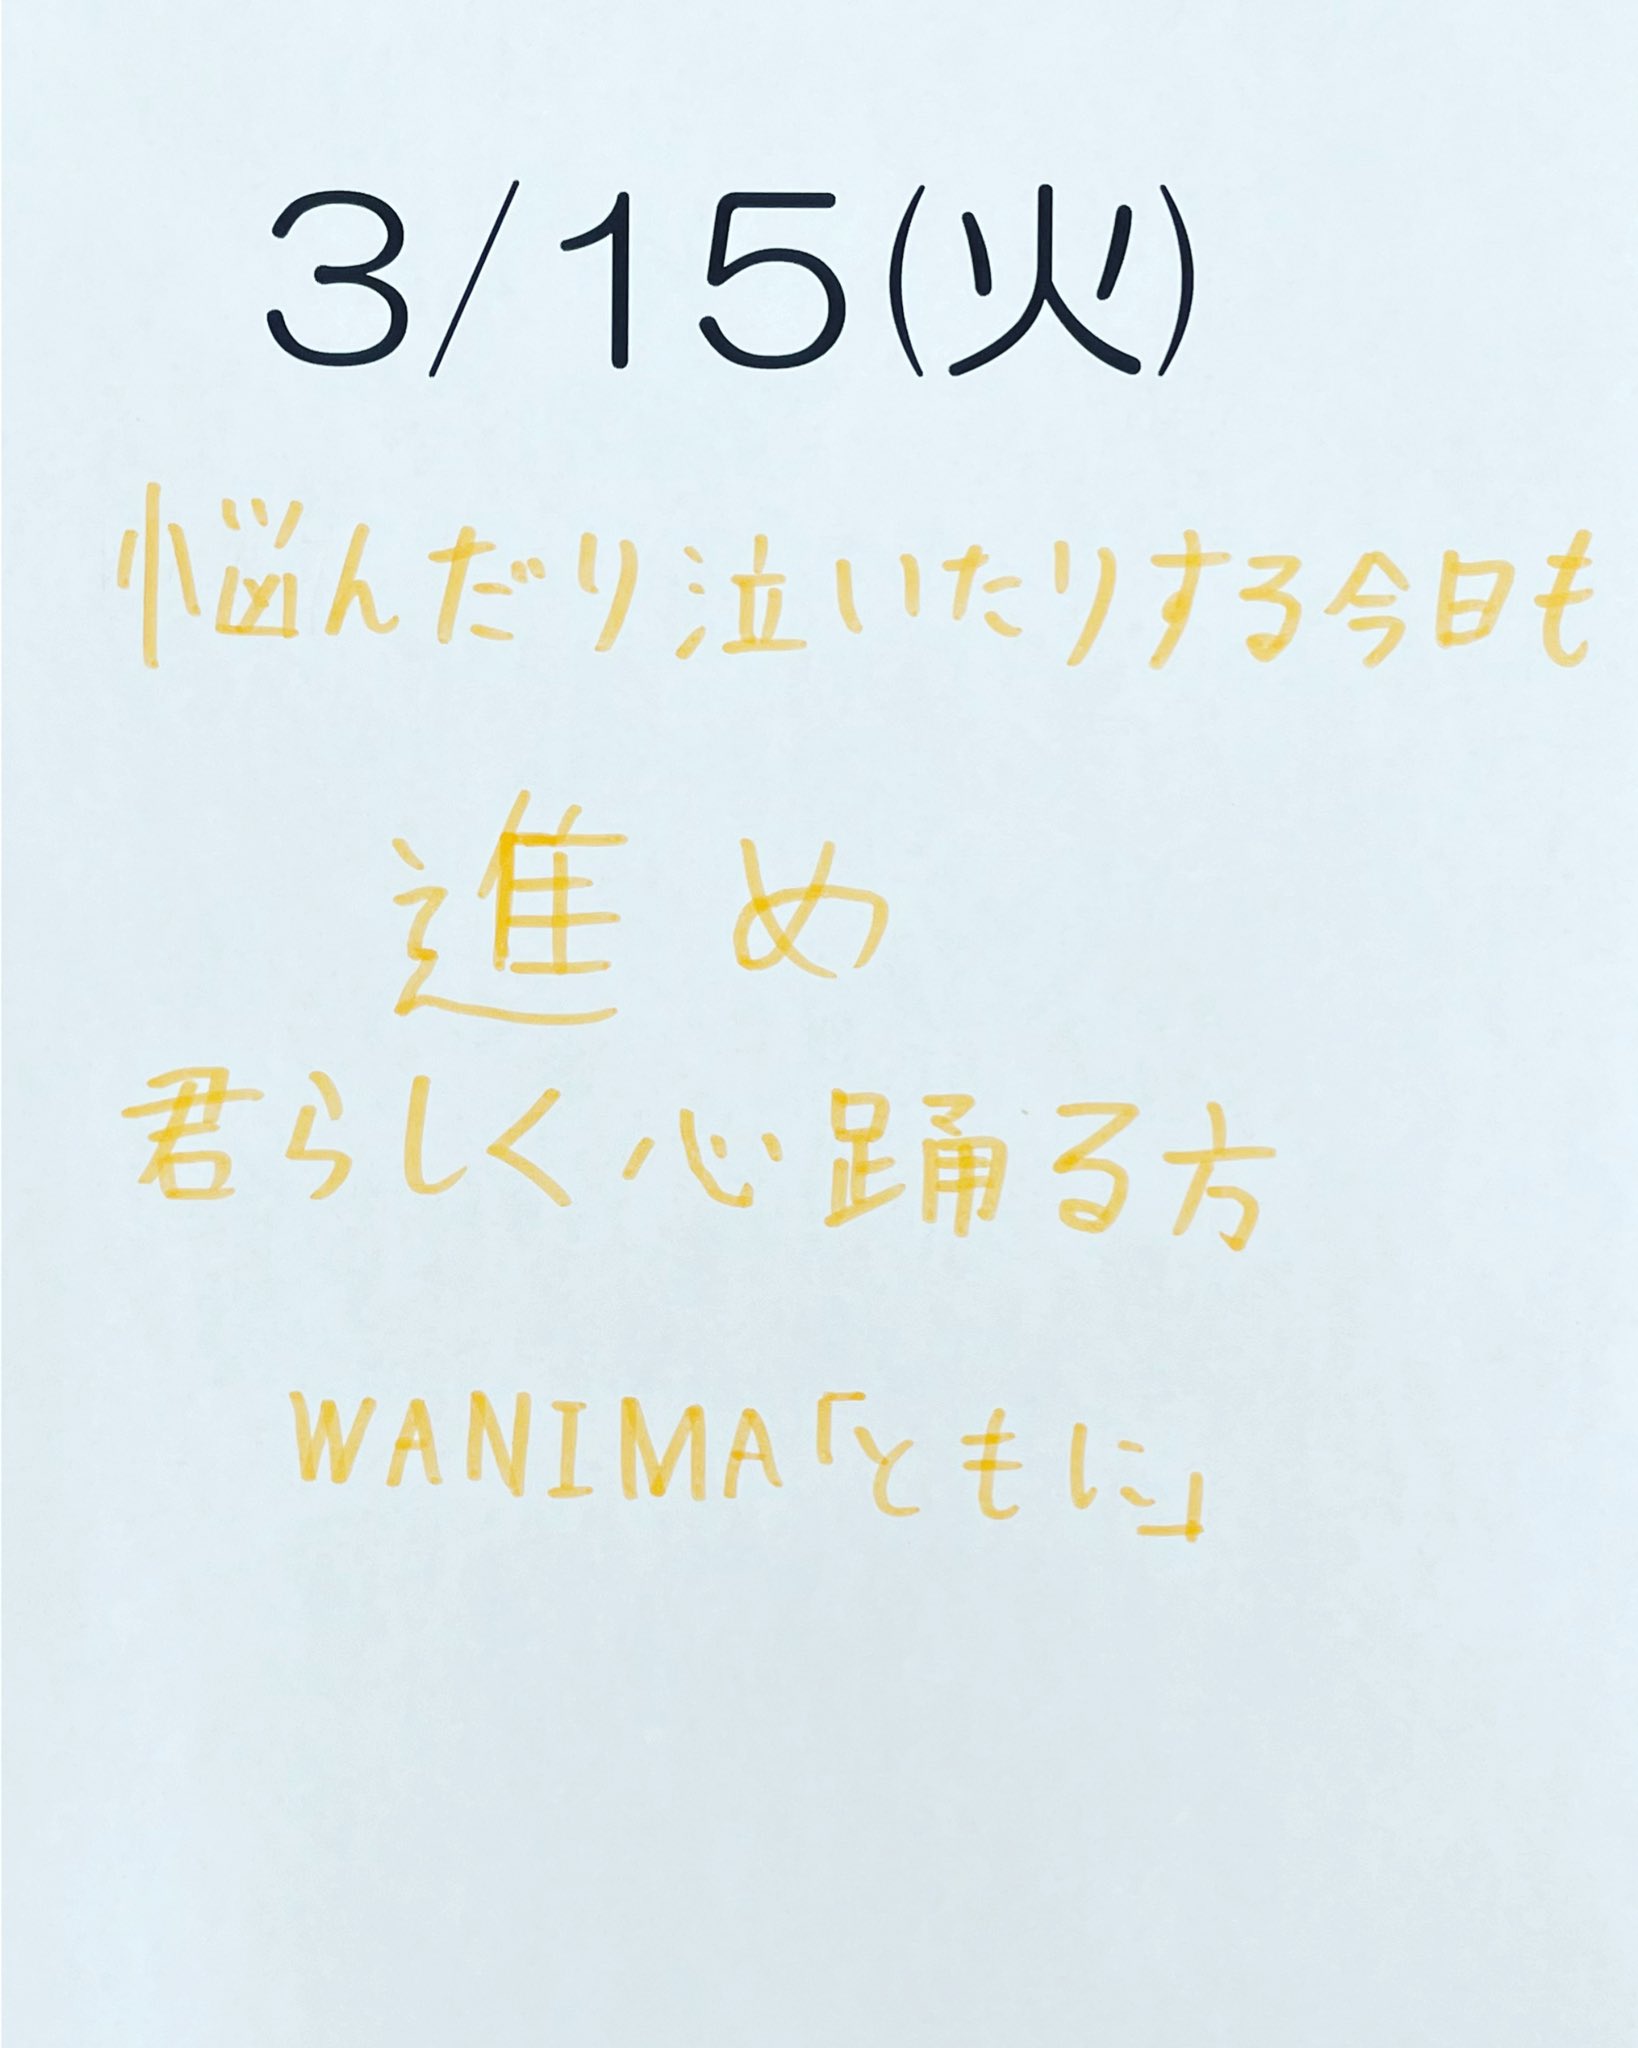 3/15(火)
悩んだり泣いたりする今日も
進め
君らしく心踊る方
WANIMA「ともに」